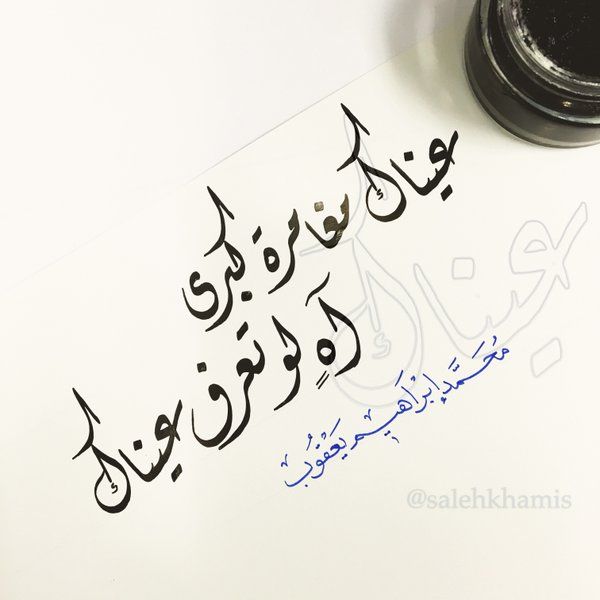 عيناك مغامرة كبرى
آهٍ لو تعرف عيناك
مُحَمَّد إبْرَاهِيم يَعْقُوب
عيناك
@salehkhamis